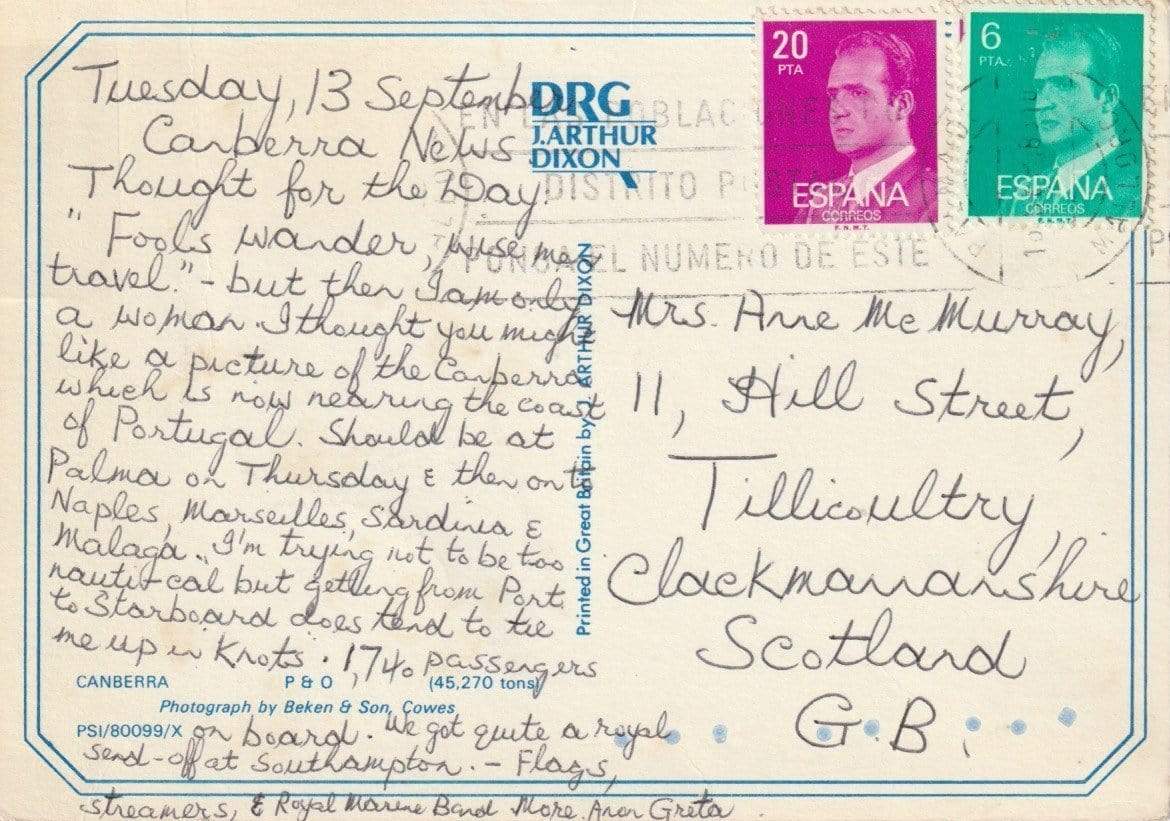 Tuesday, 13 September
Canberra News
Thought for the Day!
"Fools wander, wise men
travel." - but then I am only
a woman. I thought you might
like a picture of the Canberra
which is now nearing the coast
of Portugal. Should be at
Palma on Thursday & then on to
Naples, Marseilles, Sardinia &
Malaga. I'm trying not to be too
nauti-cal but getting from Port
to Starboard does tend to tie
me up in Knots. 1,740 passengers
on board. We got quite a royal
send-off at Southampton. - Flags,
streamers, & Royal Marine Band More Anon Greta
CANBERRA P & O (45,270 tons)
Photograph by Beken & Son, Cowes
PSI/80099/X
DRG
J.ARTHUR
DIXON
Printed in Great Britain by J. ARTHUR DIXON
20
PTA
ESPAÑA
CORREOS
F.N.M.T.
6
PTA
ESPAÑA
CORREOS
F.N.M.T.
EN LAS POBLACIONES
DISTRITO
PONGA EL NUMERO DE ESTE
Mrs. Anne McMurray,
11, Hill Street,
Tillicoultry,
Clackmananshire
Scotland
G.B.